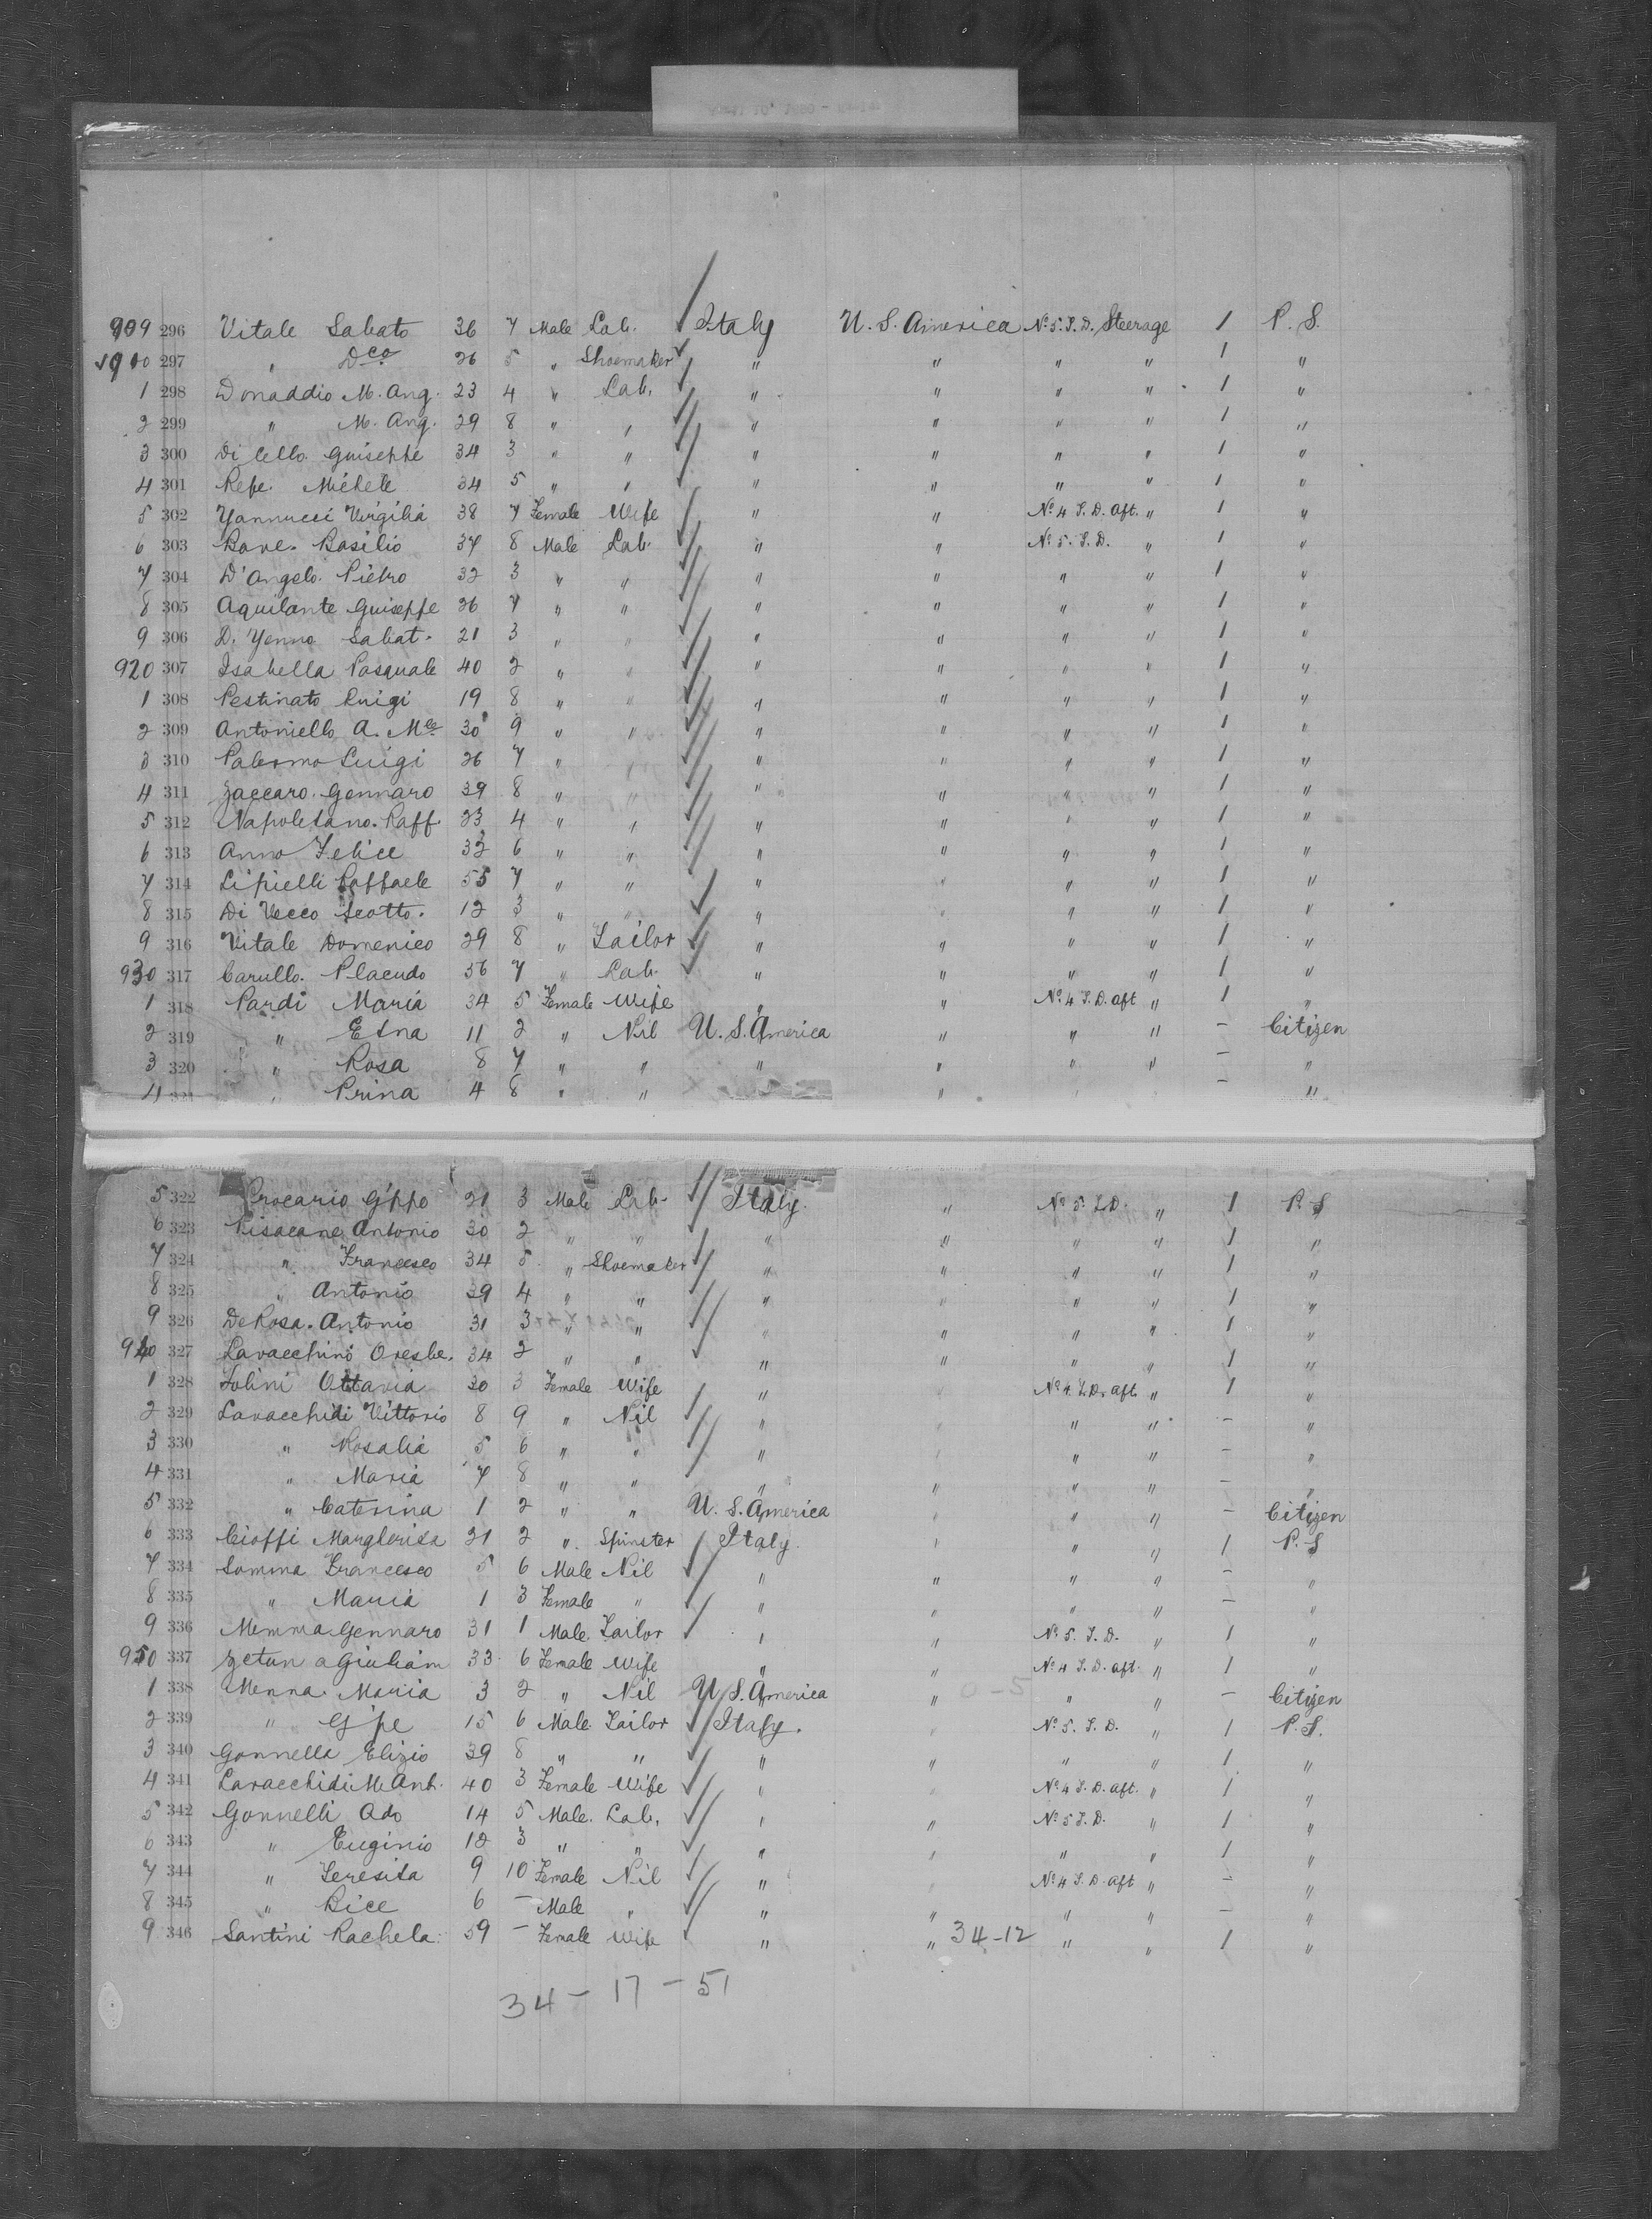 909 296 Vitale Sabato 36 7 Male Lab. Italy U. S. America No 5. S. D. Steerage 1 P. S.
1910 297 " Dco 26 5 " Shoemaker " " " " 1 "
1 298 Donaddio M. Ang. 23 4 " Lab. " " " " 1 "
2 299 " M. Ang. 29 8 " " " " " " 1 "
3 300 Di Cello. Guiseppe 34 3 " " " " " " 1 "
4 301 Repe. Michele 34 5 " " " " " " 1 "
5 302 Yannucci Virgilia 38 7 Female Wife " " No 4 S. D. aft. " 1 "
6 303 Bove. Basilio 37 8 Male Lab. " " No 5. S. D. " 1 "
7 304 D'Angelo. Pietro 32 3 " " " " " " 1 "
8 305 Aquilante Guiseppe 26 7 " " " " " " 1 "
9 306 Di Yenno Sabat. 21 3 " " " " " " 1 "
920 307 Isabella Pasquale 40 2 " " " " " " 1 "
1 308 Pestinato Luigi 19 8 " " " " " " 1 "
2 309 Antoniello A. Mle 30 9 " " " " " " 1 "
3 310 Palermo Luigi 26 7 " " " " " " 1 "
4 311 Zaccaro. Gennaro 39 8 " " " " " " 1 "
5 312 Napoletano. Raff. 23 4 " " " " " " 1 "
6 313 Anno Felice 32 6 " " " " " " 1 "
7 314 Lipielli Raffaele 55 7 " " " " " " 1 "
8 315 Di Vecco Scotto. 12 3 " " " " " " 1 "
9 316 Vitale Domenico 29 8 " Tailor " " " " 1 "
930 317 Carullo. Placudo 56 7 " Lab. " " " " 1 "
1 318 Pardi Maria 34 5 Female Wife " " No 4 S. D. aft " 1 "
2 319 " Etna 11 2 " Nil U. S. America " " " – Citizen
3 320 " Rosa 8 7 " " " " " " – "
4 321 " Prina 4 8 " " " – "
5 322 Procario G'ppo 21 3 Male Lab. Italy. " No 5. S. D. " 1 P. S
6 323 Pisacane Antonio 30 2 " " " " " " 1 "
7 324 " Francesco 34 8 " Shoemaker " " " " 1 "
8 325 " Antonio 29 4 " " " " " " 1 "
9 326 De Rosa. Antonio 31 3 " " " " " " 1 "
940 327 Lavacchino Oreste. 34 2 " " " " " " 1 "
1 328 Tolini Ottavia 30 3 Female Wife " " No 4 S. D. aft " 1 "
2 329 Lavacchidi Vittorio 8 9 " Nil " " " " – "
3 330 " Rosalia 5 6 " " " " " " – "
4 331 " Maria 7 8 " " " " " " – "
5 332 " Caterina 1 2 " " U. S. America " " " – Citizen
6 333 Cioffi Margherita 21 2 " Spinster Italy. " " " 1 P. S
7 334 Somma Francesco 5 6 Male Nil " " " " – "
8 335 " Maria 1 3 Female " " " " " – "
9 336 Memma Gennaro 31 1 Male. Tailor " " No 5. S. D. " 1 "
950 337 33 6 Female Wife " " No 4 S. D. aft. " 1 "
1 338 Menna Maria 3 2 " Nil U. S. America " 0-5 " " – Citizen
2 339 " G'pe 15 6 Male. Tailor Italy. " No 5. S. D. " 1 P. S.
3 340 Gonnella Elizio 39 8 " " " " " " 1 "
4 341 Lavacchidi M. Ant. 40 3 Female Wife " " No 4 S. D. aft. " 1 "
5 342 Gonnelli Ado 14 5 Male. Lab. " " No 5 S. D. " 1 "
6 343 " Euginio 12 3 " " " " " " 1 "
7 344 " Teresita 9 10 Female Nil " " No 4 S. D. aft " – "
8 345 " Bice 6 – Male " " " " " – "
9 346 Santini Rachela. 59 – Female Wife " " 34-12 " " 1 "
34 – 17 – 51